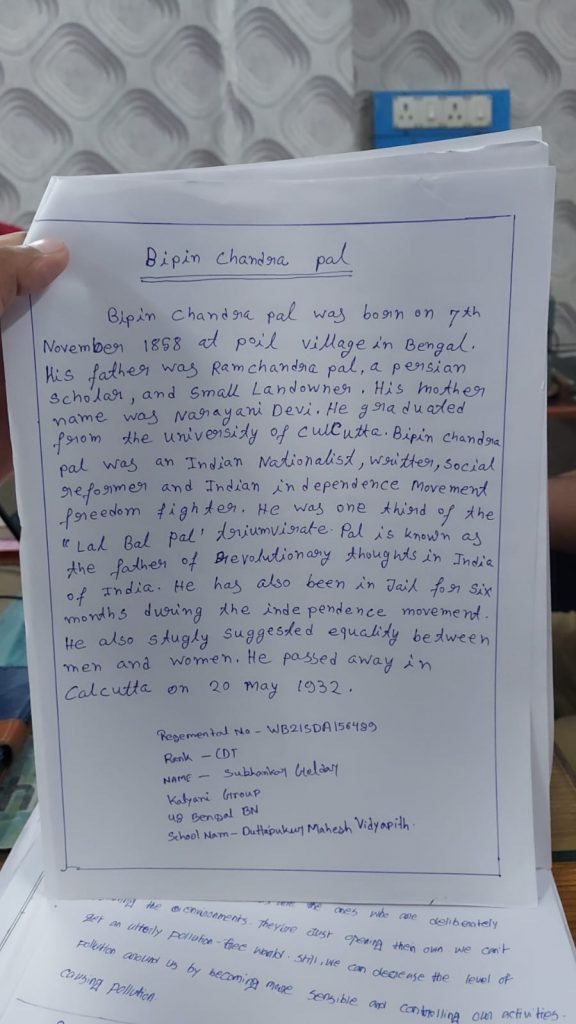 Bipin Chandra pal
Bipin Chandra pal was born on 7th
November 1858 at poil village in Bengal.
His father was Ramchandra pal, a persian
scholar, and small Landowner. His mother
name was Narayani Devi. He graduated
from the university of CulCutta. Bipin Chandra
pal was an Indian Nationalist, writter, social
reformer and Indian independence Movement
freedom fighter. He was one third of the
"Lal Bal pal' triumvirate. Pal is known as
the father of Revolutionary thoughts in India
of India. He has also been in Jail for six
months during the independence movement.
He also stugly suggested equality between
men and women. He passed away in
Calcutta on 20 may 1932.
Regemental No - WB21SDA156489
Rank - CDT
NAME - Subhankar Heldar
Kalyani Group
48 Bengal BN
School Nam - Duttapukur Mahesh Vidyapith.
the the ones who are deliberately
the environments. They're Just opening then own we can't
get an utterly pollution-free world. Still, we can decrease the level of
pollution around us by becoming more sensible and controlling our activities.
causing pollution